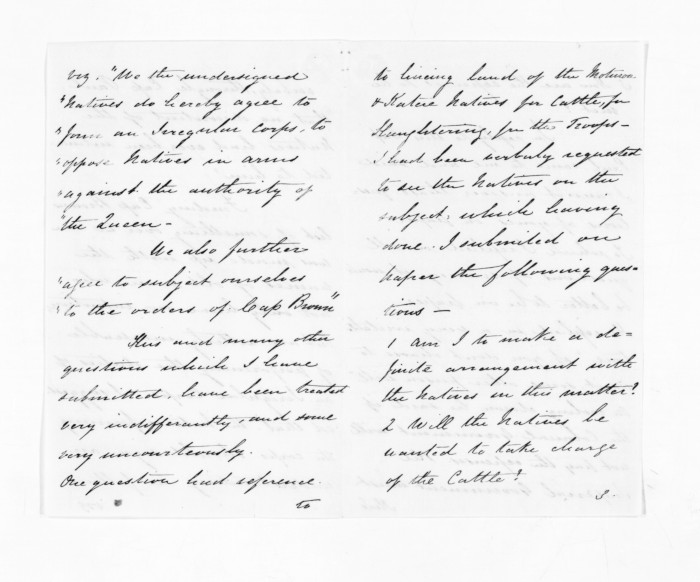 viz. "We the undersigned
"Natives do hereby agree to
"form an Irregular Corps, to
"oppose Natives in arms
"against the authority of
"the Queen -
We also further
"agee to subject ourselves
"to the orders of Cap Brown"
This and many other
questions which I have
submitted, have been treated
very indifferantly and some
very uncourteously.
One question had reference.
to
to hiring land of the
& Katere Natives for Cattle, for
Slaughtering, for the Troops -
I had been verbaly requested
to see the Natives on the
subject, which having
done. I submited on
paper the following ques-
tions -
1 Am I to make a de-
finite arrangement with
the Natives in this matter?
2 Will the Natives be
wanted to take charge
of the Cattle?
3.